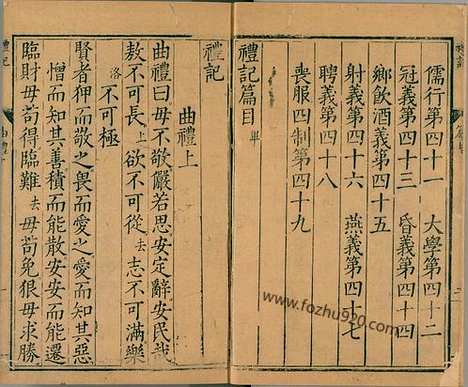 儒行第四十一　大學第四十二
冠義第四十三　昏義第四十四
鄉飲酒義第四十五
射義第四十六　燕義第四十七
聘義第四十八
喪服四制第四十九
禮記篇目畢
禮記
曲禮上
曲禮曰毋不敬儼若思安定辭安民哉
敖不可長上欲不可從去志不可滿樂
洛不可極
賢者狎而敬之畏而愛之愛而知其惡
憎而知其善積而能散安安而能遷
臨財毋苟得臨難去毋苟免狠毋求勝
禮記
曲禮
www.fozhu920.com